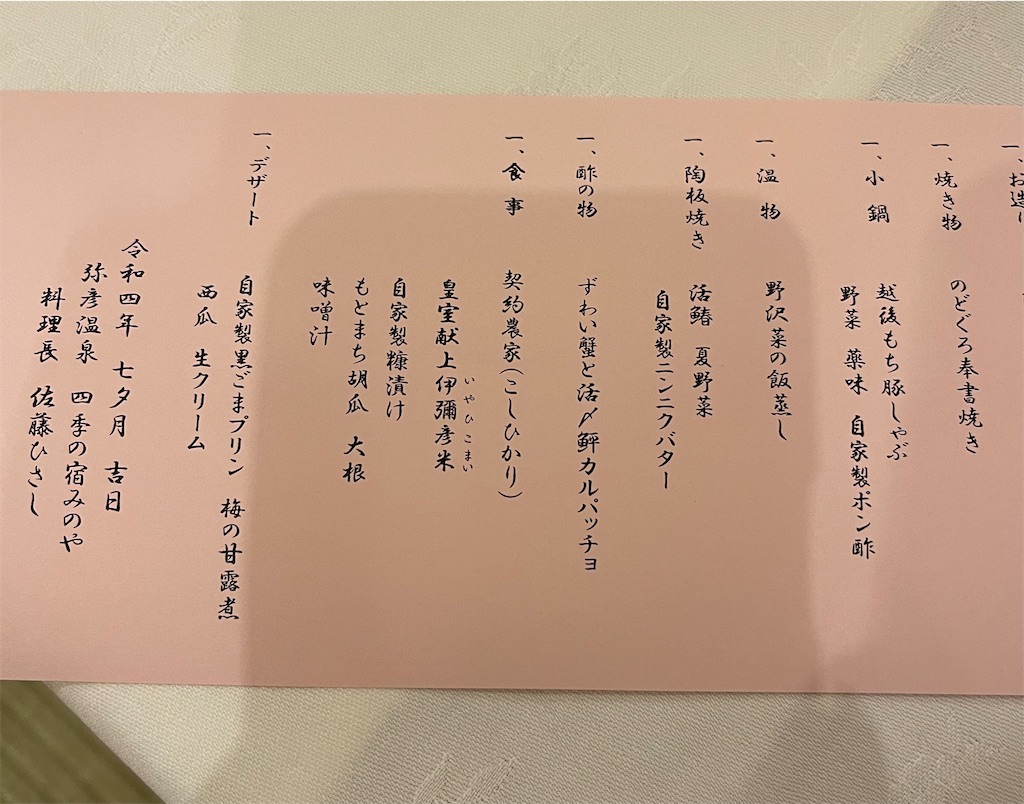 一、お造り
一、焼き物 のどぐろ奉書焼き
一、小鍋 越後もち豚しゃぶ
野菜 薬味 自家製ポン酢
一、温物 野沢菜の飯蒸し
一、陶板焼き 活鰆 夏野菜
自家製ニンニクバター
一、酢の物 ずわい蟹と活〆鮃カルパッチョ
一、食事 契約農家(こしひかり)
皇室献上伊彌彦米
いやひこまい
自家製糠漬け
もとまち胡瓜 大根
味噌汁
一、デザート 自家製黒ごまプリン 梅の甘露煮
西瓜 生クリーム
令和四年 七夕月 吉日
弥彦温泉 四季の宿みのや
料理長 佐藤ひさし